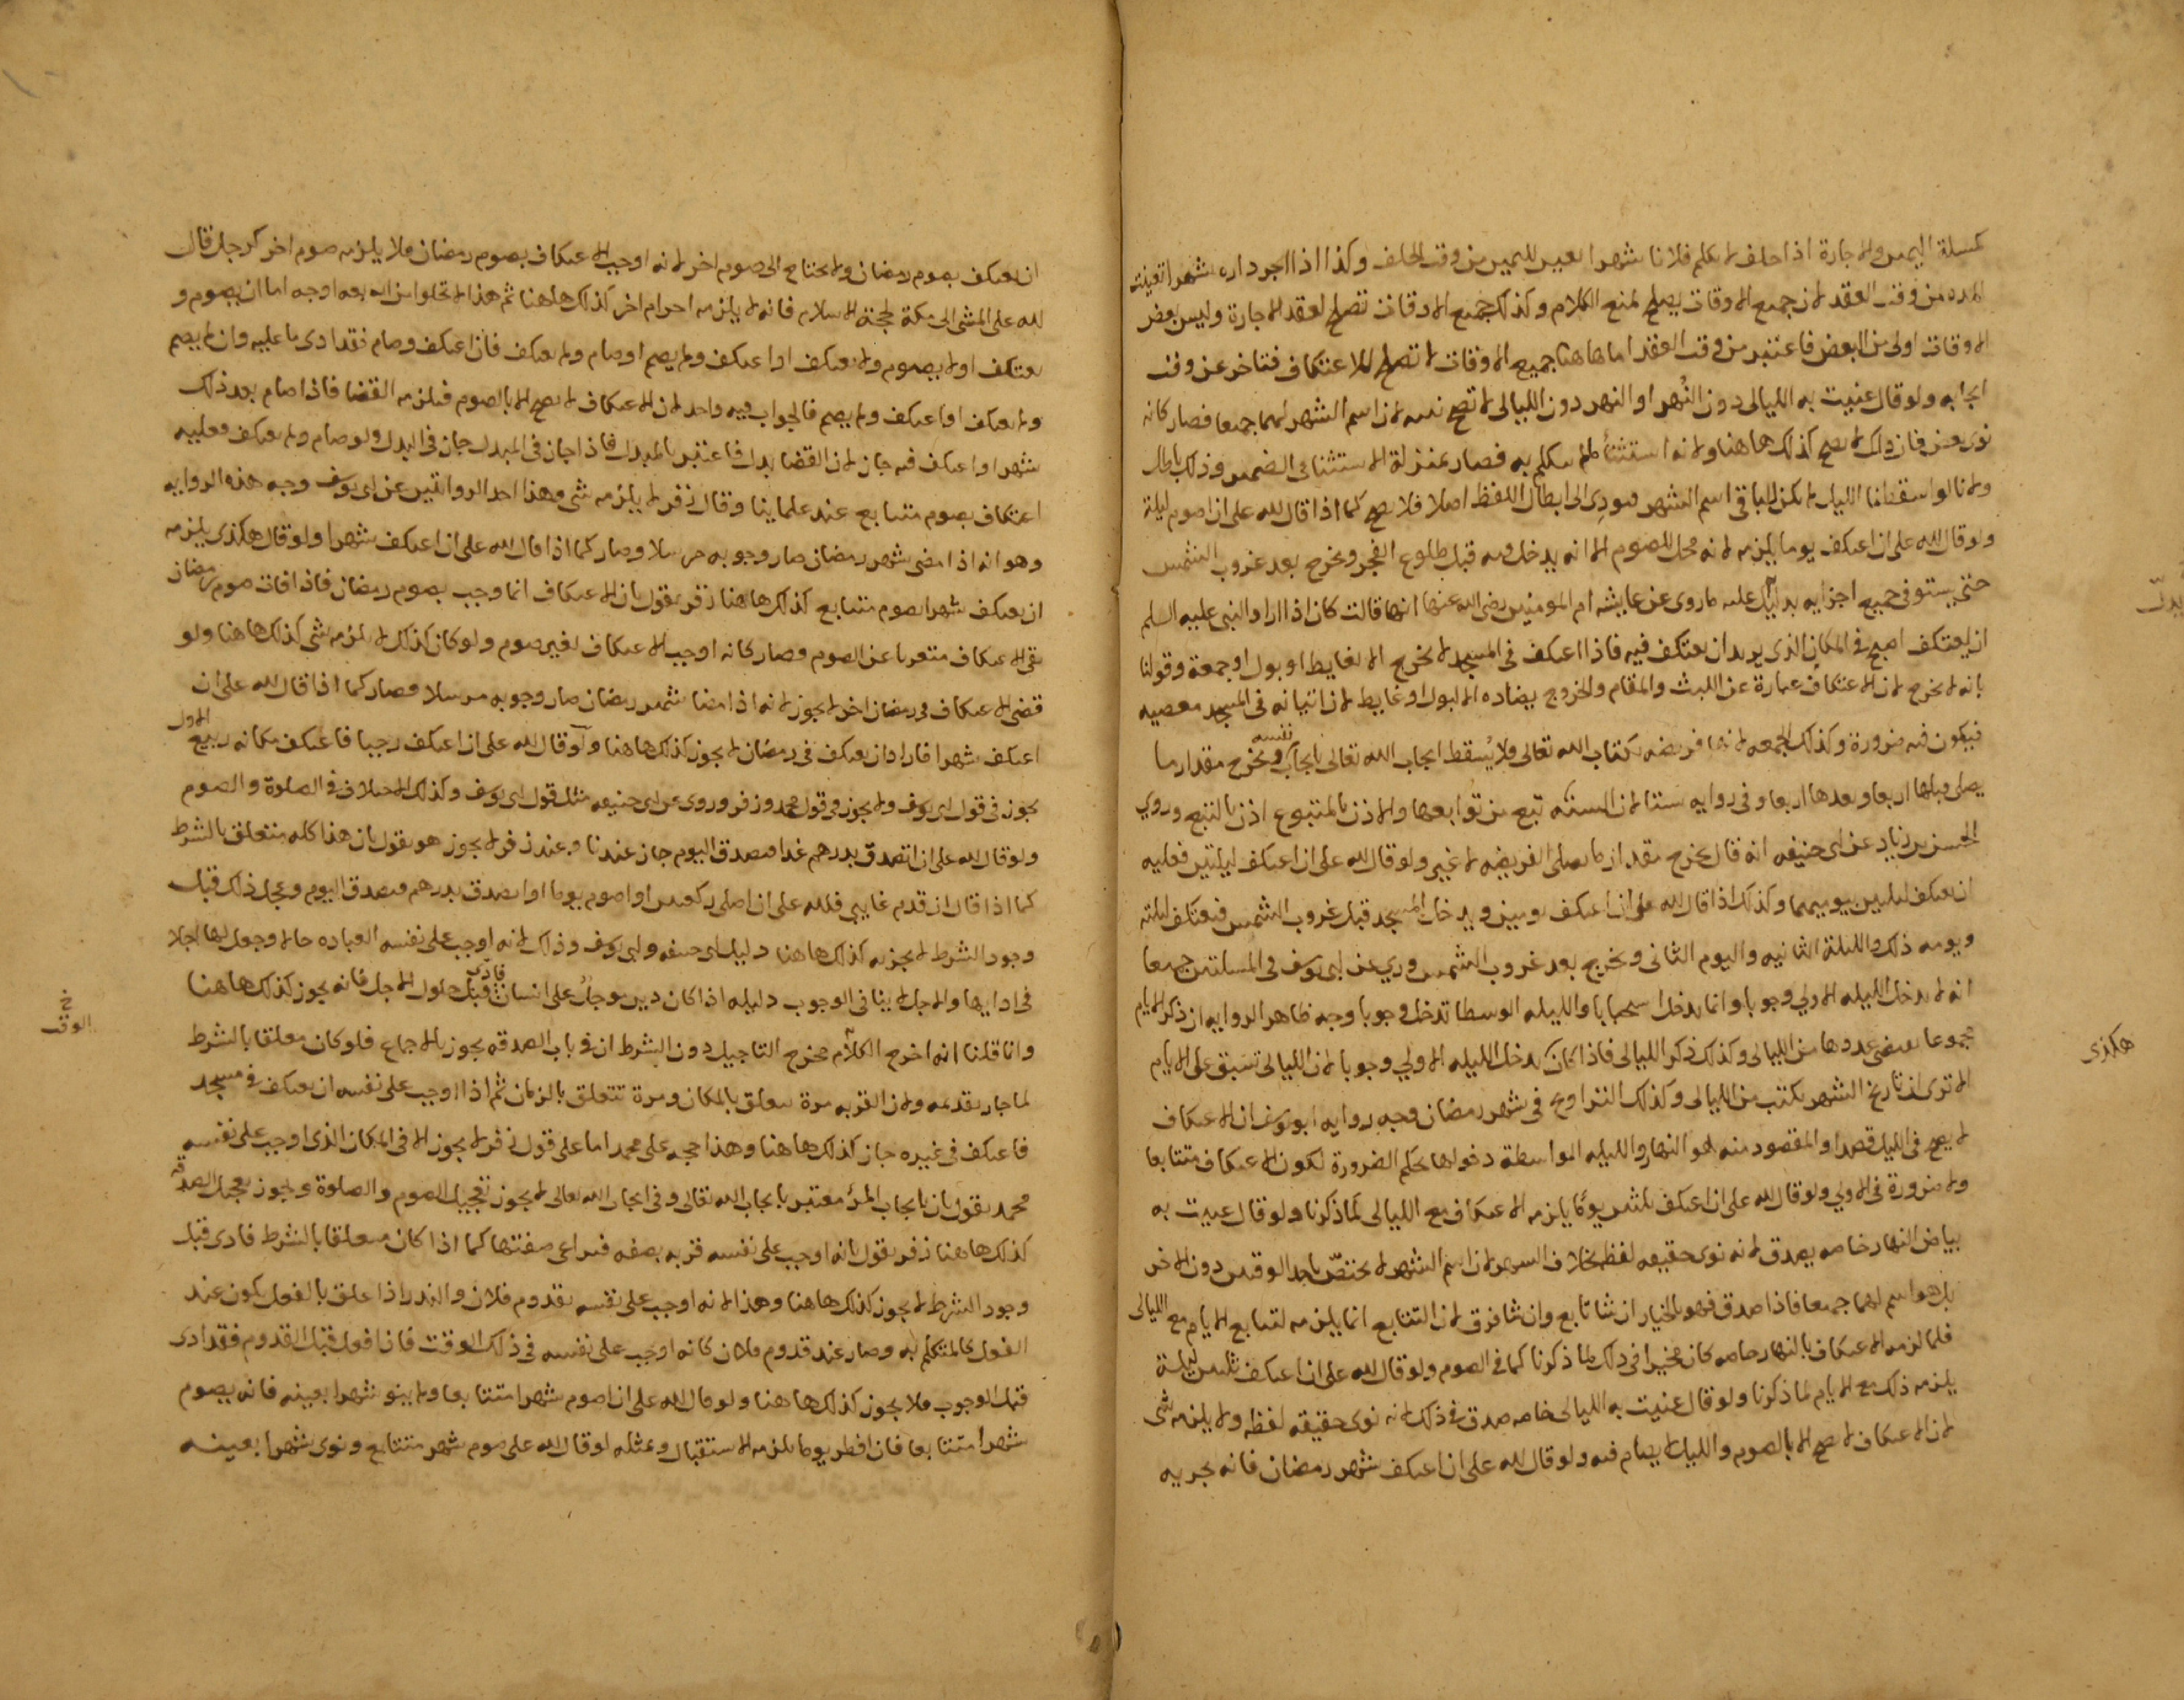 كمسلة اليمين والاجارة اذا حلف لا يكلم فلانا شهرا تعين لليمين من وقت الحلف وكذا اذا اجر داره شهرا تعينت
المده من وقت العقد لان جميع الاوقات يصلح لمنع الكلام وكذلك جميع الاوقات تصلح لعقد الاجارة وليس بعض
الاوقات اولى من البعض فاعتبر من وقت العقد اما هاهنا جميع الاوقات لا تصلح للاعتكاف فتاخر عن وقت
ايجابه ولو قال عنيت به الليالى دون النهر او النهر دون الليالى لا تصح نيته لان اسم الشهر لهما جميعا فصار كانه
نوى بعض فان ذلك لا يصح كذلك هاهنا ولانه استثنا لما لم يتكلم به فصار بمنزلة الاستثنا فى الضمير وذلك باطل
ولانا لو اسقطنا الليل لم يكن للباقى اسم الشهر فيودى الى ابطال اللفظ اصلا فلا يصح كما اذا قال لله على ان اصوم ليلة
ولو قال لله على ان اعتكف يوما يلزمه لانه محل للصوم الا انه يدخل فيه قبل طلوع الفجر ويخرج بعد غروب الشمس
حتى يستوفى جميع اجزايه بدليل عليه ما روى عن عايشه ام المومنين رضى الله عنها انها قالت كان اذا اراد النبى عليه السلم
ان يعتكف اصبح فى المكان الذى يريد ان يعتكف فيه فاذا اعتكف فى المسجد لا يخرج الا لغايط او بول او جمعة وقولنا
بانه لا يخرج لان الاعتكاف عبارة عن اللبث والمقام والخروج يضاده الا لبول او غايط لان اتيانه فى المسجد معصيه
فيكون فيه ضرورة وكذلك الجمعه لانها فريضه بكتاب الله تعالى ولا يسقط ايجاب الله تعالى بايجاب نفسه ويخرج مقدار ما
يصلى قبلها اربعا وبعدها اربعا وفى روايه ستا لان السنه تبع من توابعها والاذن بالمتبوع اذن بالتبع وروي
الحسن بن زياد عن ابى حنيفه انه قال يخرج مقدار ما يصلى الفريضه لا غير ولو قال لله على ان اعتكف ليلتين فعليه
ان يعتكف ليلتين بيوميهما وكذلك اذا قال لله على ان اعتكف يومين ويدخل المسجد قبل غروب الشمس فيعتكف ليلته
ويومه ذلك والليلة الثانيه واليوم الثانى ويخرج بعد غروب الشمس وروي عن ابى يوسف فى المسلتين جميعا
انه لا يدخل الليله الاولى وجوبا وانما يدخل استحبابا والليله الوسطا تدخل وجوبا وجه ظاهر الروايه ان ذكر الايام
مجموعا يقتضى عددها من الليالى وكذلك ذكر الليالى فاذا كان كذلك يدخل الليله الاولي وجوبا لان الليالى تسبق على الايام
الا ترى ان تاريخ الشهر يكتب من الليالى وكذلك التراويح فى شهر رمضان وجه روايه ابو يوسف ان الاعتكاف
لا يصح فى الليل قصدا والمقصود منه هو النهار والليله المواسطة دخولها بحكم الضرورة لكون الاعتكاف متتابعا
ولا ضرورة فى الاولي ولو قال لله على ان اعتكف ثلثين يوما يلزمه الاعتكاف مع الليالى لما ذكرنا ولو قال عنيت به
بياض النهار خاصه يصدق لانه نوى حقيقه لفظه بخلاف الشهر لان اسم الشهر لا يختص باحد الوقتين دون الاخر
بل هو اسم لهما جميعا فاذا صدق فهو بالخيار ان شا تابع وان شا فرق لان التتابع انما يلزمه لتتابع الايام مع الليالى
فلما لزمه الاعتكاف بالنهار خاصه كان مخيرا فى ذلك لما ذكرنا كما فى الصوم ولو قال لله على ان اعتكف ثلثين ليلة
يلزمه ذلك مع الايام لما ذكرنا ولو قال عنيت به الليالى خاصه صدق فى ذلك لانه نوى حقيقه لفظه ولا يلزمه شى
لان الاعتكاف لا يصح الا بالصوم والليل لا يصام فيه ولو قال لله على ان اعتكف شهر رمضان فانه يجزيه
يدل
هكذى
ان يعتكف بصوم رمضان ولا يحتاج الى صوم اخر لانه اوجب الاعتكاف بصوم رمضان فلا يلزمه صوم اخر كرجل قال
لله على المشى الى مكة لحجة الاسلام فانه لا يلزمه احرام اخر كذلك هاهنا ثم هذا لا تخلوا من اربعه اوجه اما ان يصوم و
يعتكف او لا يصوم ولا يعتكف او اعتكف ولم يصم او صام ولم يعتكف فان اعتكف وصام فقد ادى ما عليه وان لم يصم
ولم يعتكف او اعتكف ولم يصم فالجواب فيه واحد لان الاعتكاف لا يصح الا بالصوم فيلزمه القضا فاذا صام بعد ذلك
شهرا واعتكف فيه جاز لان القضا بدل فاعتبر بالمبدل فاذا جاز فى المبدل جاز فى البدل ولو صام ولم يعتكف فعليه
اعتكاف بصوم متتابع عند علماينا وقال زفر لا يلزمه شى وهذا احد الروايتين عن ابى يوسف وجه هذه الروايه
وهو انه اذا مضى شهر رمضان صار وجوبه مرسلا وصار كما اذا قال لله على ان اعتكف شهرا ولو قال هكذى يلزمه
ان يعتكف شهرا بصوم متتابع كذلك هاهنا زفر يقول بان الاعتكاف انما وجب بصوم رمضان فاذا فات صوم رمضان
بقى الاعتكاف متعريا عن الصوم وصار كانه اوجب الاعتكاف بغير صوم ولو كان كذلك لا يلزمه شى كذلك هاهنا ولو
قضى الاعتكاف فى رمضان اخر لا يجوز لانه اذا مضا شهر رمضان صار وجوبه مرسلا فصار كما اذا قال لله على ان
اعتكف شهرا فاراد ان يعتكف فى رمضان لا يجوز كذلك هاهنا ولو قال لله على ان اعتكف رجبا فاعتكف مكانه ربيع الاول
يجوز فى قول ابى يوسف ولا يجوز فى قول محمد وزفر وروى عن ابى حنيفه مثل قول ابى يوسف وكذلك الاختلاف فى الصلوة والصوم
ولو قال لله على ان اتصدق بدرهم غدا فتصدق اليوم جاز عندنا وعند زفر لا يجوز هو يقول بان هذا كله متعلق بالشرط
كما اذا قال ان قدم غايبي فلله على ان اصلى ركعتين او اصوم يوما او اتصدق بدرهم فتصدق اليوم وعجل ذلك قبل
وجود الشرط لا يجزيه كذلك هاهنا دليل ابى حنيفه وابى يوسف وذلك لانه اوجب على نفسه العباده حالا وجعل لها اجلا
فى ادايها والاجل لا ينافى الوجوب دليله اذا كان دين موجل على انسان فادى قبل حلول الاجل فانه يجوز كذلك هاهنا
وانا قلنا انه اخرج الكلام مخرج التاجيل دون الشرط ان فى باب الصدقه يجوز بالاجماع فلو كان معلقا بالشرط
لما جاز تقديمه ولان القربه مرة تتعلق بالمكان ومرة تتعلق بالزمان ثم اذا اوجب على نفسه ان يعتكف فى مسجد
فاعتكف فى غيره جاز كذلك هاهنا وهذا حجه على محمد اما على قول زفر لا يجوز الا فى المكان الذى اوجب على نفسه
محمد يقول بان ايجاب المرء معتبر بايجاب الله تعالى وفى ايجاب الله تعالى لا يجوز تعجيل الصوم والصلوة ويجوز تعجيل الصدقه
كذلك هاهنا زفر يقول بانه اوجب على نفسه قربه بصفه فيراعى صفتها كما اذا كان معلقا بالشرط فادى قبل
وجود الشرط لا يجوز كذلك هاهنا وهذا لانه اوجب على نفسه بقدوم فلان والنذر اذا علق بالفعل يكون عند
الفعل كالمتكلم به وصار عند قدوم فلان كانه اوجب على نفسه فى ذلك الوقت فان افعل قبل القدوم فقد ادى
قبل الوجوب فلا يجوز كذلك هاهنا ولو قال لله على ان اصوم شهرا متتابعا ولم ينو شهرا بعينه فانه يصوم
شهرا متتابعا فان افطر يوما يلزمه الاستقبال وبمثله لو قال لله على صوم شهر متتابع ونوى شهرا بعينه
خ
الوقت